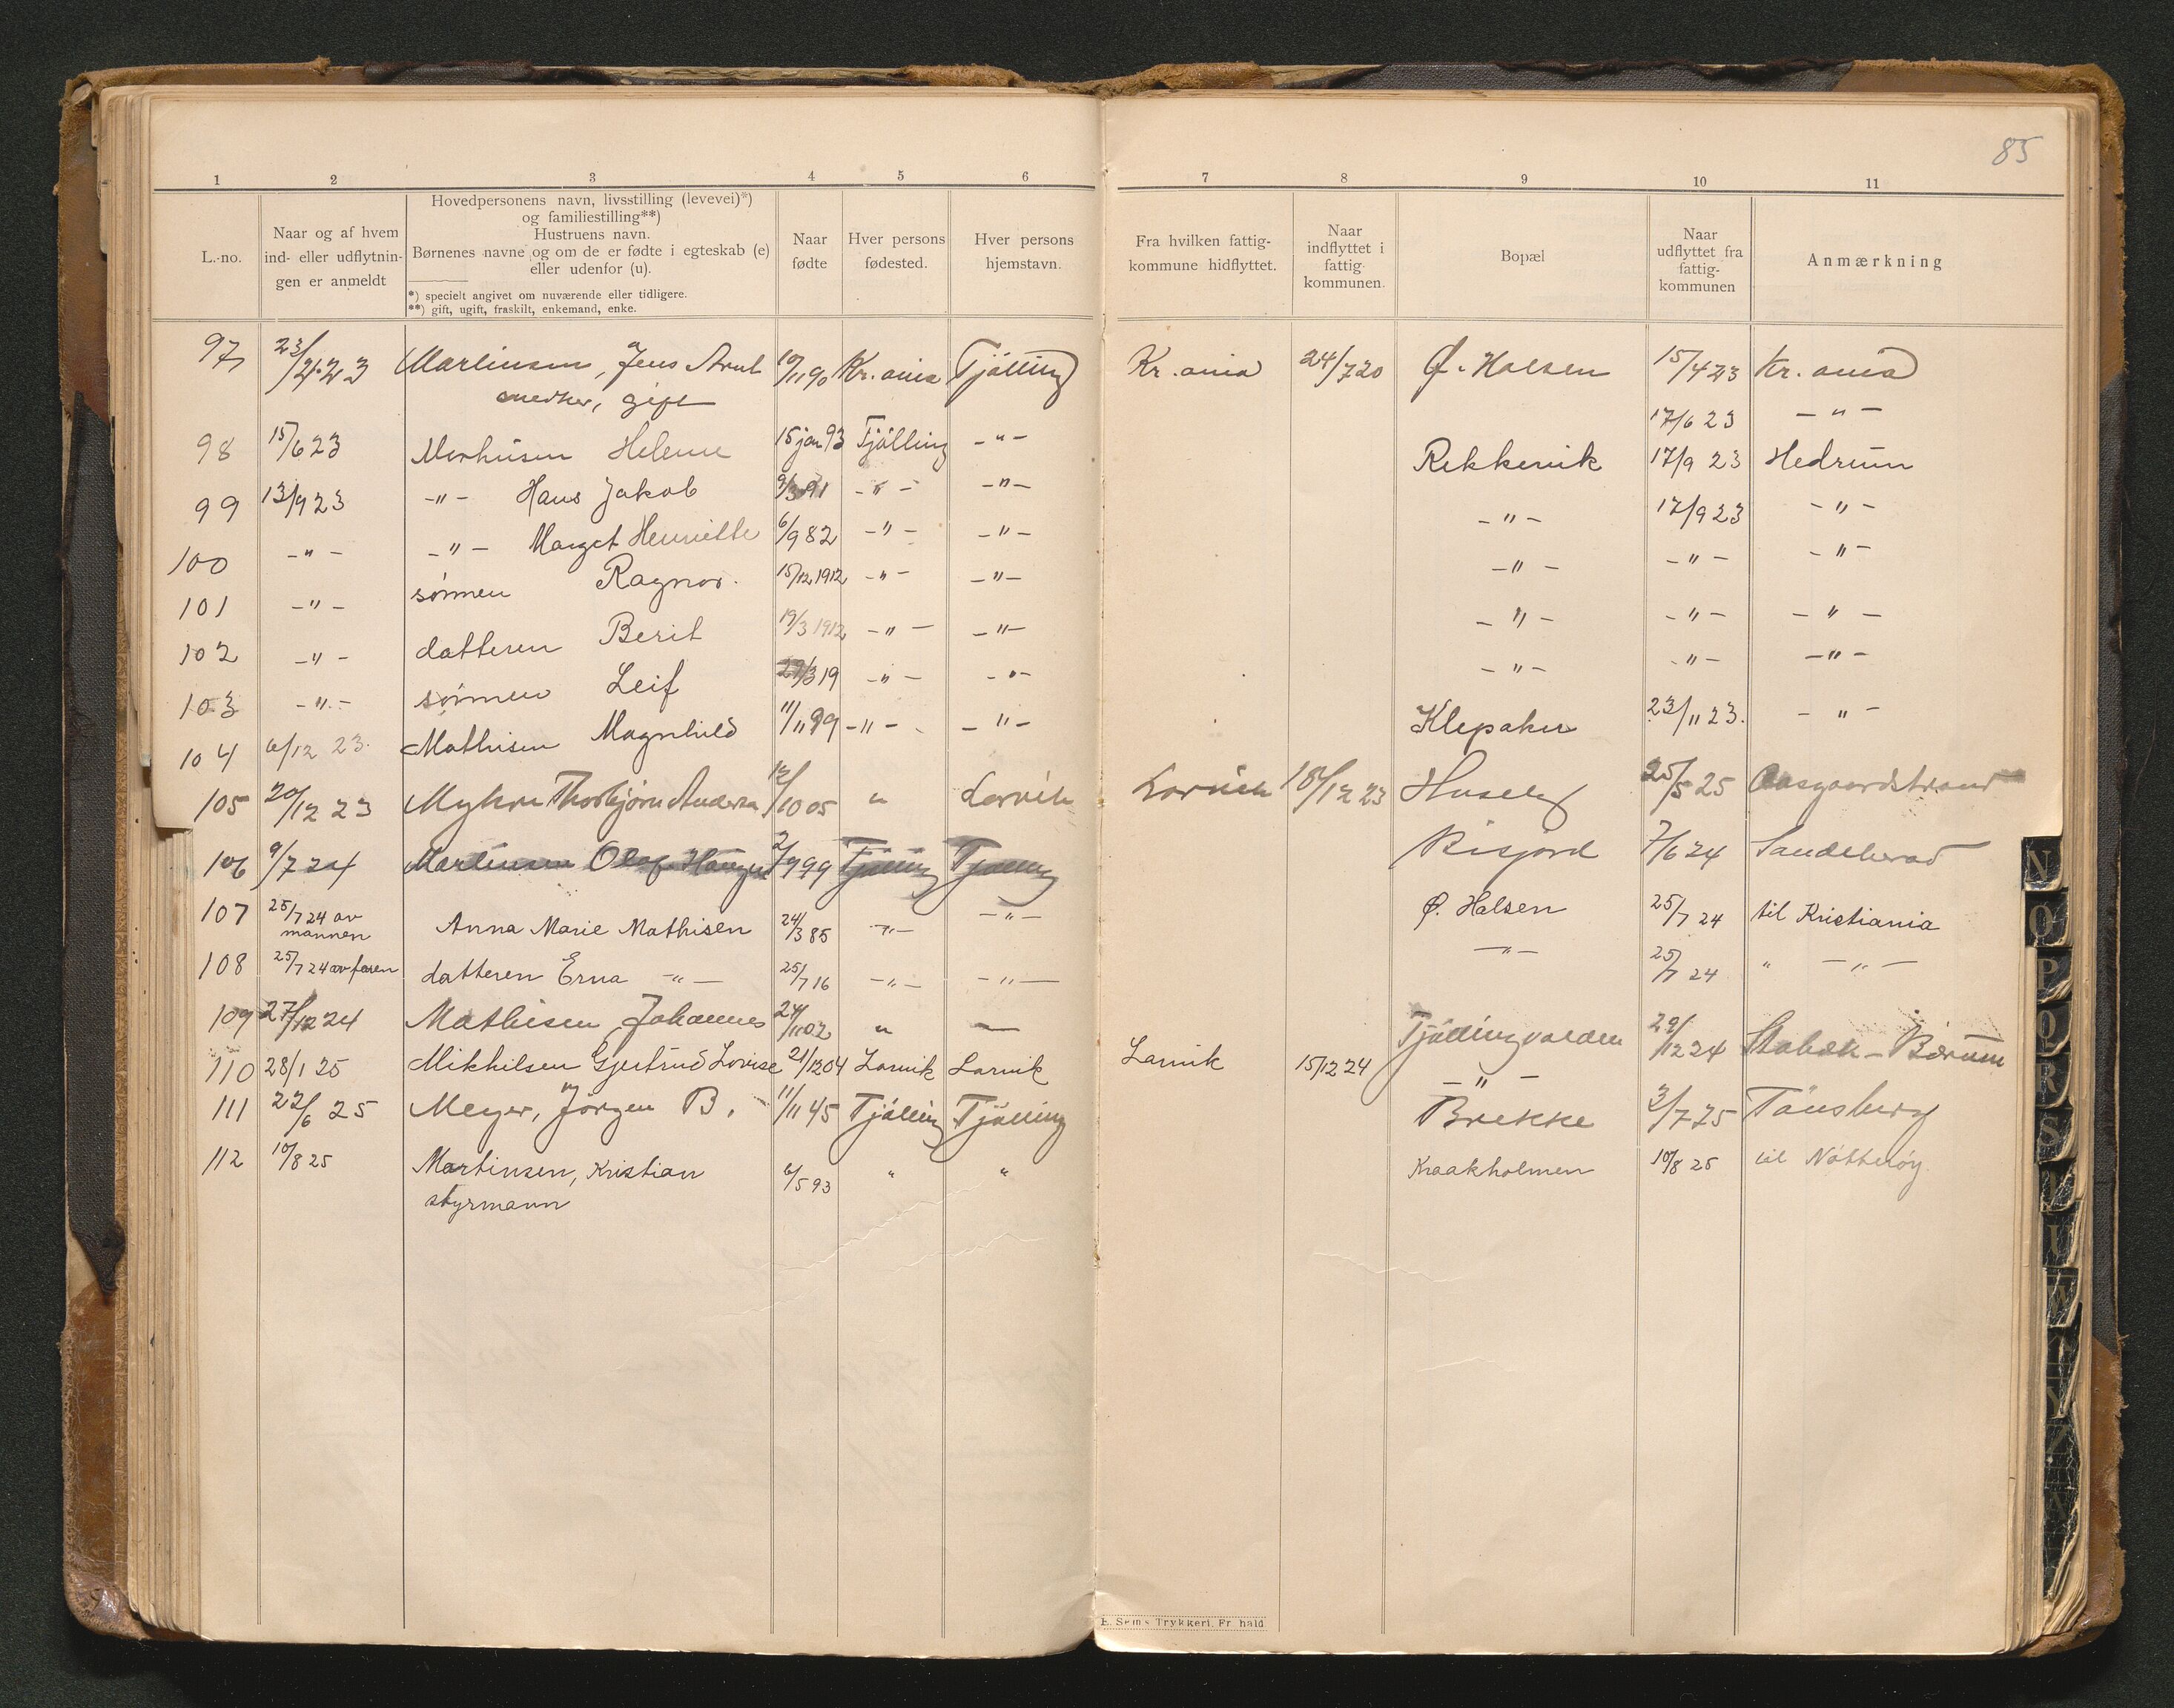 85
1 2 3 4 5 6 7 8 9 10 11
L.-no.
Naar og af hvem
ind- eller udflytnin-
gen er anmeldt
Hovedpersonens navn, livsstilling (levevei)*)
og familiestilling**)
Hustruens navn.
Børnenes navne og om de er fødte i egteskab (e)
eller udenfor (u).
*) specielt angivet om nuværende eller tidligere.
**) gift, ugift, fraskilt, enkemand, enke.
Naar
fødte
Hver persons
fødested.
Hver persons
hjemstavn.
Fra hvilken fattig-
kommune hidflyttet.
Naar
indflyttet i
fattig-
kommunen.
Bopæl
Naar
udflyttet fra
fattig-
kommunen
Anmærkning
97 23/4 23 Martinsen, Jens Arnt 10/11 90 Kr.ania Tjölling Kr.ania 24/7 20 Ø. Halsen 15/4 23 Kr.ania
snedker, gift
17/6 23 -"-
98 15/6 23 Helene 15 jan 93 Tjölling -"-
Rekkevik 17/9 23 Hedrum
99 13/9 23 -"- Hans Jakob 9/3 91 -"- -"-
-"- 17/9 23 -"-
100 -"- -"- Marget Henriette 6/9 82 -"- -"-
-"- -"- -"-
101 -"- sønnen Ragnar. 15/12 1912 -"- -"-
-"- -"- -"-
102 -"- datteren Berit 19/3 1912 -"- -"-
-"- -"- -"-
103 -"- sønnen Leif 27/3 19 -"- -"-
Klepaker 23/11 23. -"-
104 6/12 23. Mathisen Magnhild 11/11 99 -"- -"-
105 20/12 23 Thorbjørn Anders 12/10 05 " Larvik Larvik 18/12 23 Huseby 25/5 25 Aasgaardstrand
106 9/7 24 Martinsen Olaf 2/9 99 Tjölling Tjölling Bisjord 7/6 24 Sandeherad
107 25/7 24 av
mannen
Anna Marie Mathisen 24/3 85 -"- -"- Ø. Halsen 25/7 24 til Kristiania
108 25/7 24 av faren datteren Erna -"- 25/7 16 -"- -"- -"- 25/7 24 " -"-
109 27/12 24 Mathisen, Johannes 24/11 02 " — Tjöllingvolden 29/12 24 Stabæk - Bærum
110 28/1 25 Mikkelsen Gjertrud Lovise 21/12 04 Larvik Larvik Larvik 15/12 24 -"-
111 22/6 25 Meyer, Jörgen B. 11/11 45 Tjölling Tjölling Brekke 3/7 25 Tönsberg
112 10/8 25 Martinsen, Kristian 6/5 93 " " Kraakholmen 10/8 25 til Nötteröy
styrmann
E. Sem's Trykkeri, Fr.hald
N
O
P
Q
R
S
U
W
Y
Z